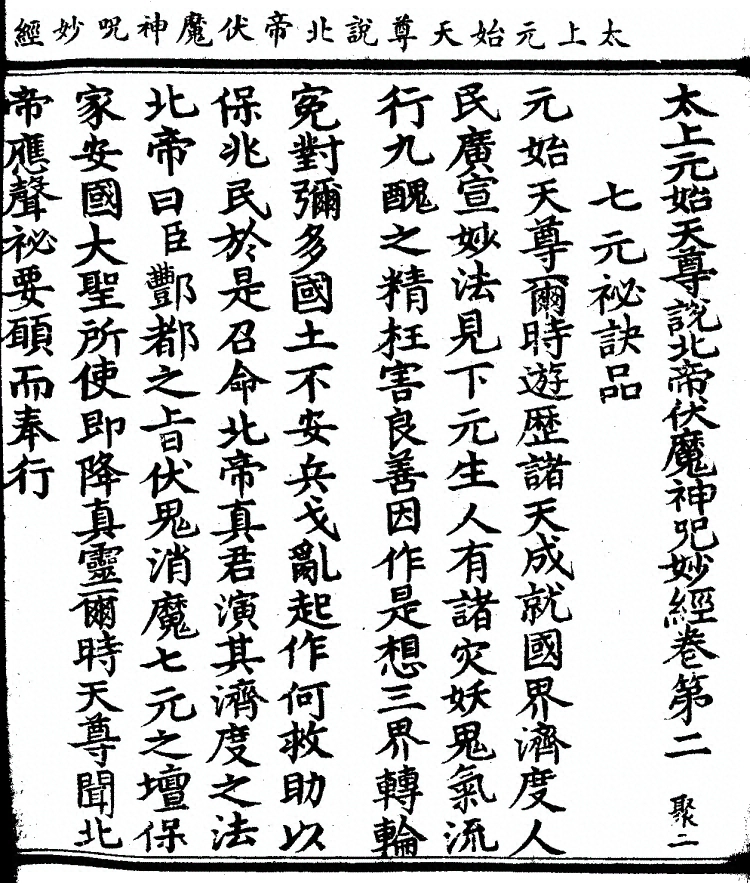 太上元始天尊說北帝伏魔神呪妙經
太上元始天尊說北帝伏魔神呪妙經卷第二 聚二
七元祕訣品
元始天尊爾時遊歷諸天成就國界濟度人
民廣宣妙法見下元生人有諸灾妖鬼氣流
行九醜之精枉害良善因作是想三界轉輪
寃對彌多國土不安兵戈亂起作何救助以
保兆民於是召命北帝真君演其濟度之法
北帝曰臣酆都之㫖伏鬼消魔七元之壇保
家安國大聖所使即降真靈爾時天尊聞北
帝應聲祕要頋而奉行